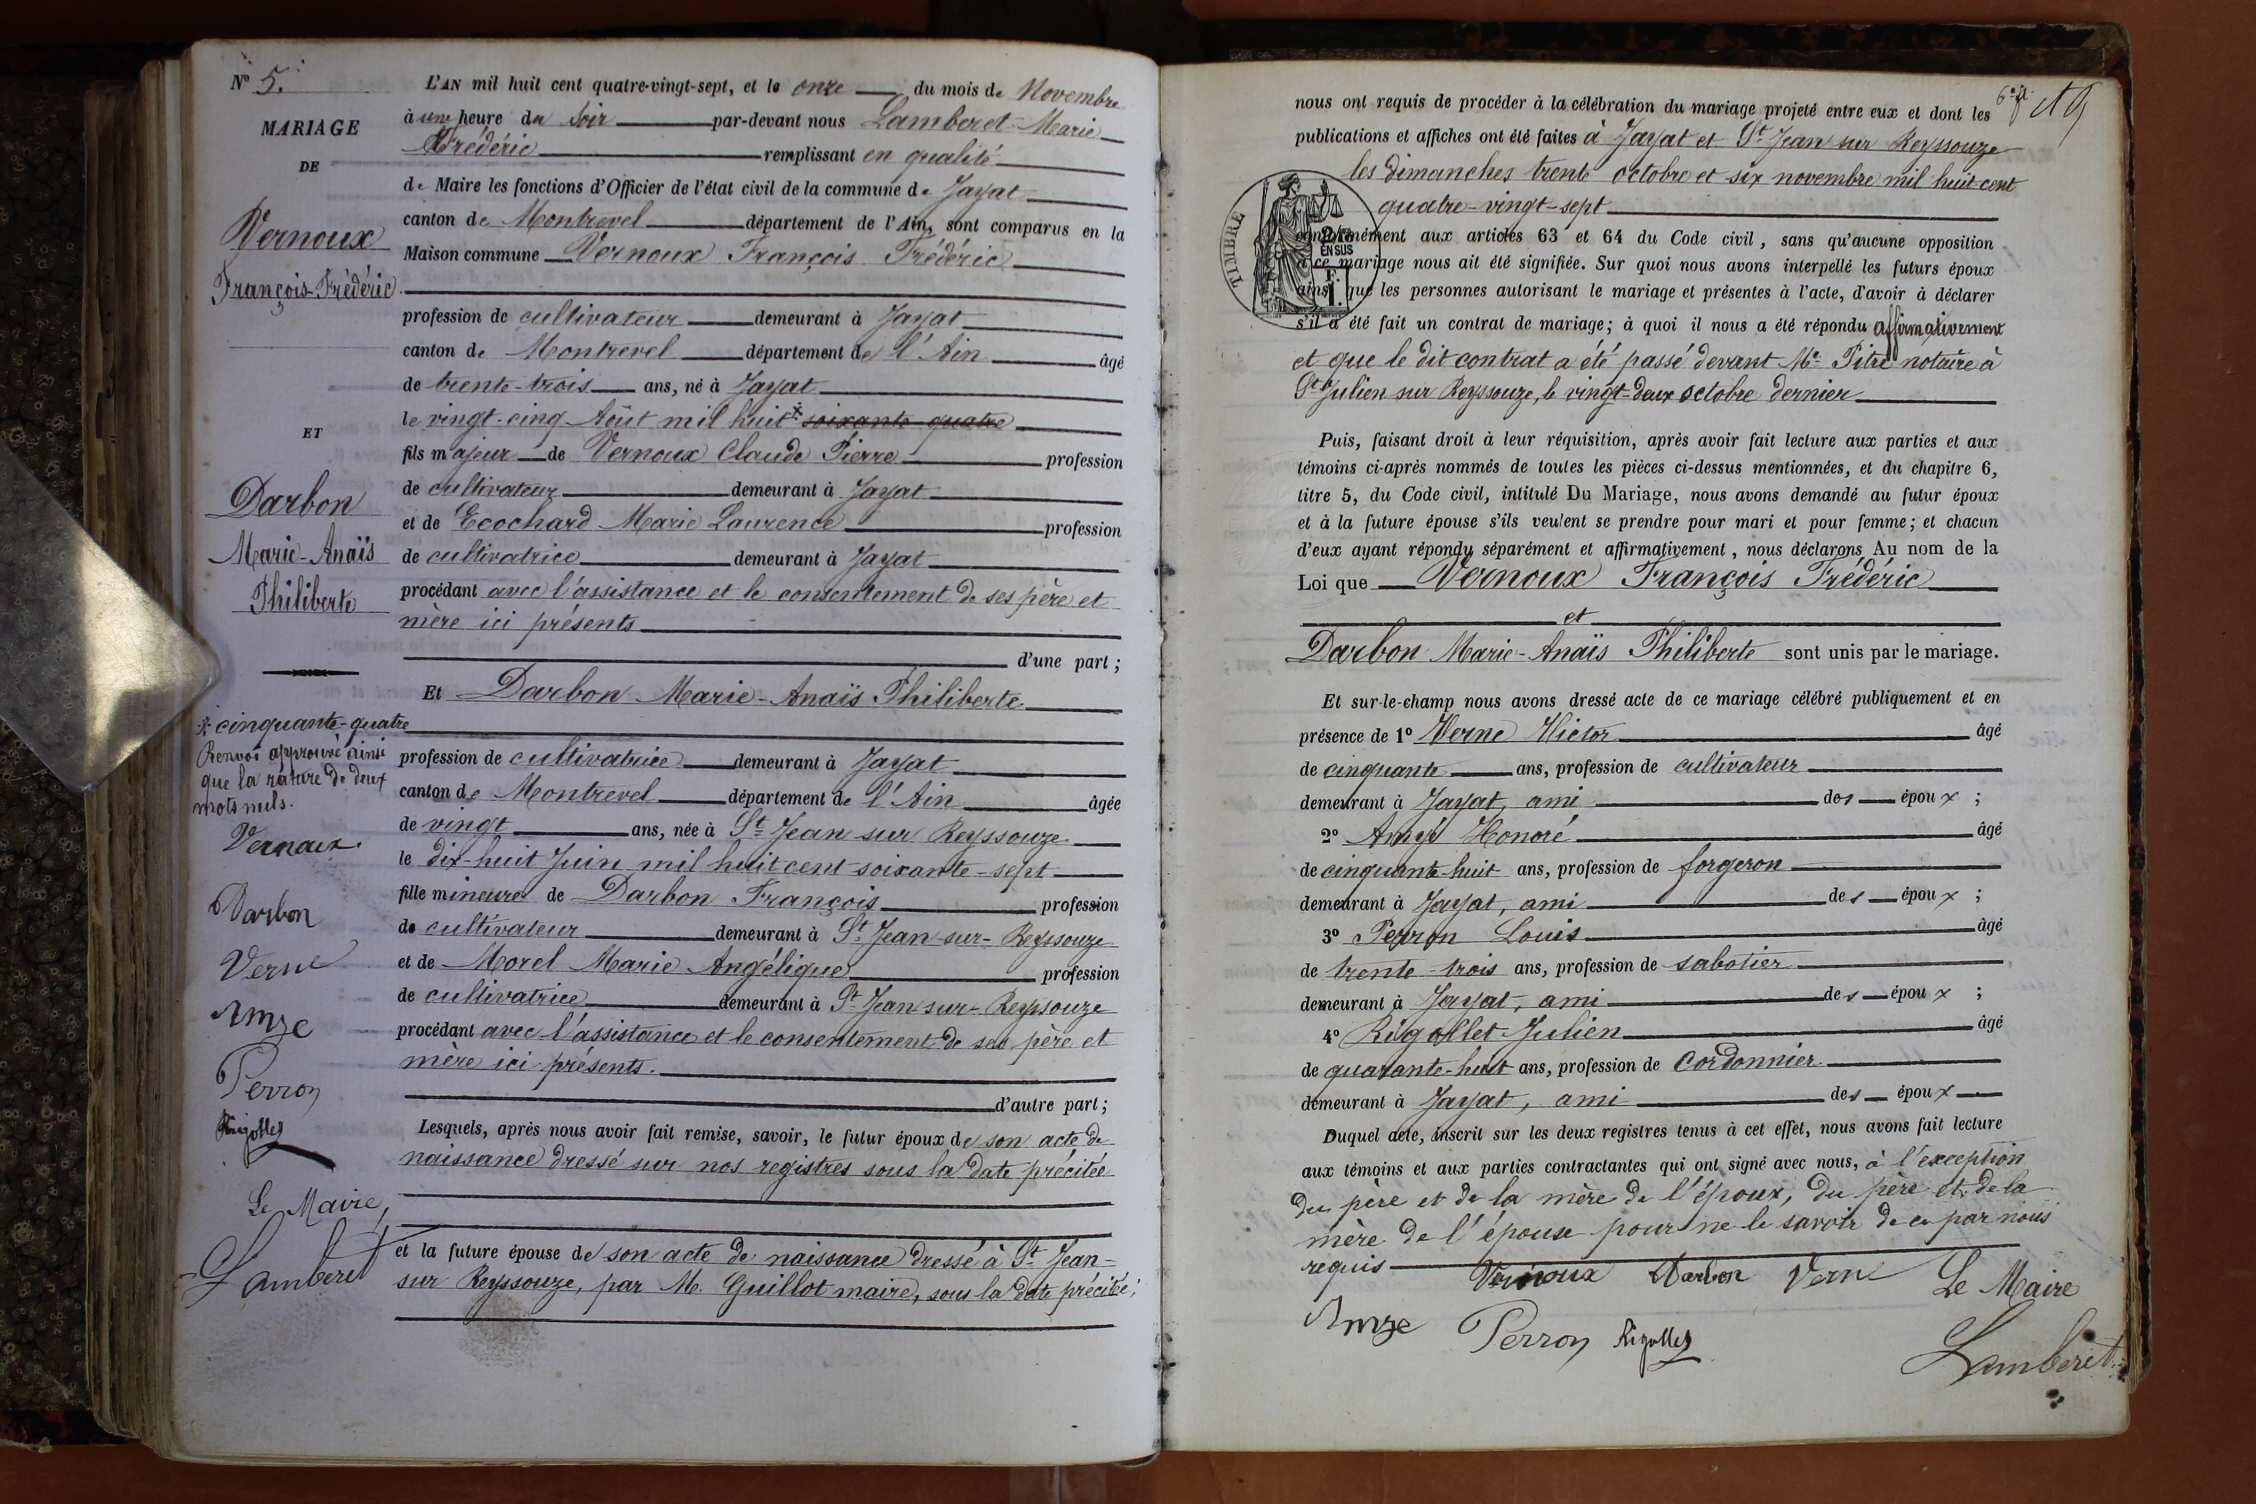 N° 5.
MARIAGE
DE
Vernoux
François-Frédéric
ET
Darbon
Marie-Anaïs
Philiberte
* cinquante-quatre
Renvoi approuvé ainsi
que la rature de deux
mots nuls.
Vernoux
Darbon
Verne
Amye
Perron
Rigollet
Le Maire,
Lamberet
L'AN mil huit cent quatre-vingt-sept, et le onze du mois de Novembre
à une heure du Soir par-devant nous Lamberet Marie
Frédéric remplissant en qualité
de Maire les fonctions d'Officier de l'état civil de la commune de Jayat
canton de Montrevel département de l'Ain, sont comparus en la
Maison commune Vernoux François Frédéric
profession de cultivateur demeurant à Jayat
canton de Montrevel département de l'Ain âgé
de trente-trois ans, né à Jayat
le vingt-cinq Août mil huit * soixante quatre
fils majeur de Vernoux Claude Pierre profession
de cultivateur demeurant à Jayat
et de Ecochard Marie Laurence profession
de cultivatrice demeurant à Jayat
procédant avec l'assistance et le consentement de ses père et
mère ici présents
d'une part ;
Et Darbon Marie-Anaïs Philiberte
profession de cultivatrice demeurant à Jayat
canton de Montrevel département de l'Ain âgée
de vingt ans, née à St Jean sur Reyssouze
le dix-huit Juin mil huit cent soixante-sept
fille mineure de Darbon François profession
de cultivateur demeurant à St Jean-sur-Reyssouze
et de Morel Marie Angélique profession
de cultivatrice demeurant à St Jean sur-Reyssouze
procédant avec l'assistance et le consentement de ses père et
mère ici présents.
d'autre part ;
Lesquels, après nous avoir fait remise, savoir, le futur époux de son acte de
naissance dressé sur nos registres sous la date précitée
et la future épouse de son acte de naissance dressé à St Jean-
sur Reyssouze, par M. Guillot maire, sous la date précitée ;
19
nous ont requis de procéder à la célébration du mariage projeté entre eux et dont les
publications et affiches ont été faites à Jayat et St Jean sur Reyssouze
les dimanches trente octobre et six novembre mil huit cent
quatre-vingt-sept
TIMBRE
EN SUS
F.
1.
conformément aux articles 63 et 64 du Code civil, sans qu'aucune opposition
à ce mariage nous ait été signifiée. Sur quoi nous avons interpellé les futurs époux
ainsi que les personnes autorisant le mariage et présentes à l'acte, d'avoir à déclarer
s'il a été fait un contrat de mariage ; à quoi il nous a été répondu affirmativement
et que le dit contrat a été passé devant Me Pitre notaire à
St Julien sur Reyssouze, le vingt-deux octobre dernier
Puis, faisant droit à leur réquisition, après avoir fait lecture aux parties et aux
témoins ci-après nommés de toutes les pièces ci-dessus mentionnées, et du chapitre 6,
titre 5, du Code civil, intitulé Du Mariage, nous avons demandé au futur époux
et à la future épouse s'ils veulent se prendre pour mari et pour femme ; et chacun
d'eux ayant répondu séparément et affirmativement, nous déclarons Au nom de la
Loi que Vernoux François Frédéric
et
Darbon Marie-Anaïs Philiberte sont unis par le mariage.
Et sur-le-champ nous avons dressé acte de ce mariage célébré publiquement et en
présence de 1° Verne Victor âgé
de cinquante ans, profession de cultivateur
demeurant à Jayat, ami des époux ;
2° Amye Honoré âgé
de cinquante-huit ans, profession de forgeron
demeurant à Jayat, ami des époux ;
3° Perron Louis âgé
de trente-trois ans, profession de sabotier
demeurant à Jayat, ami des époux ;
4° Rigollet Julien âgé
de quarante-huit ans, profession de cordonnier
demeurant à Jayat, ami des époux
Duquel acte, inscrit sur les deux registres tenus à cet effet, nous avons fait lecture
aux témoins et aux parties contractantes qui ont signé avec nous, à l'exception
du père et de la mère de l'époux, du père et de la
mère de l'épouse pour ne le savoir de ce par nous
requis
Vernoux Darbon Verne Le Maire
Amye Perron Rigollet
Lamberet